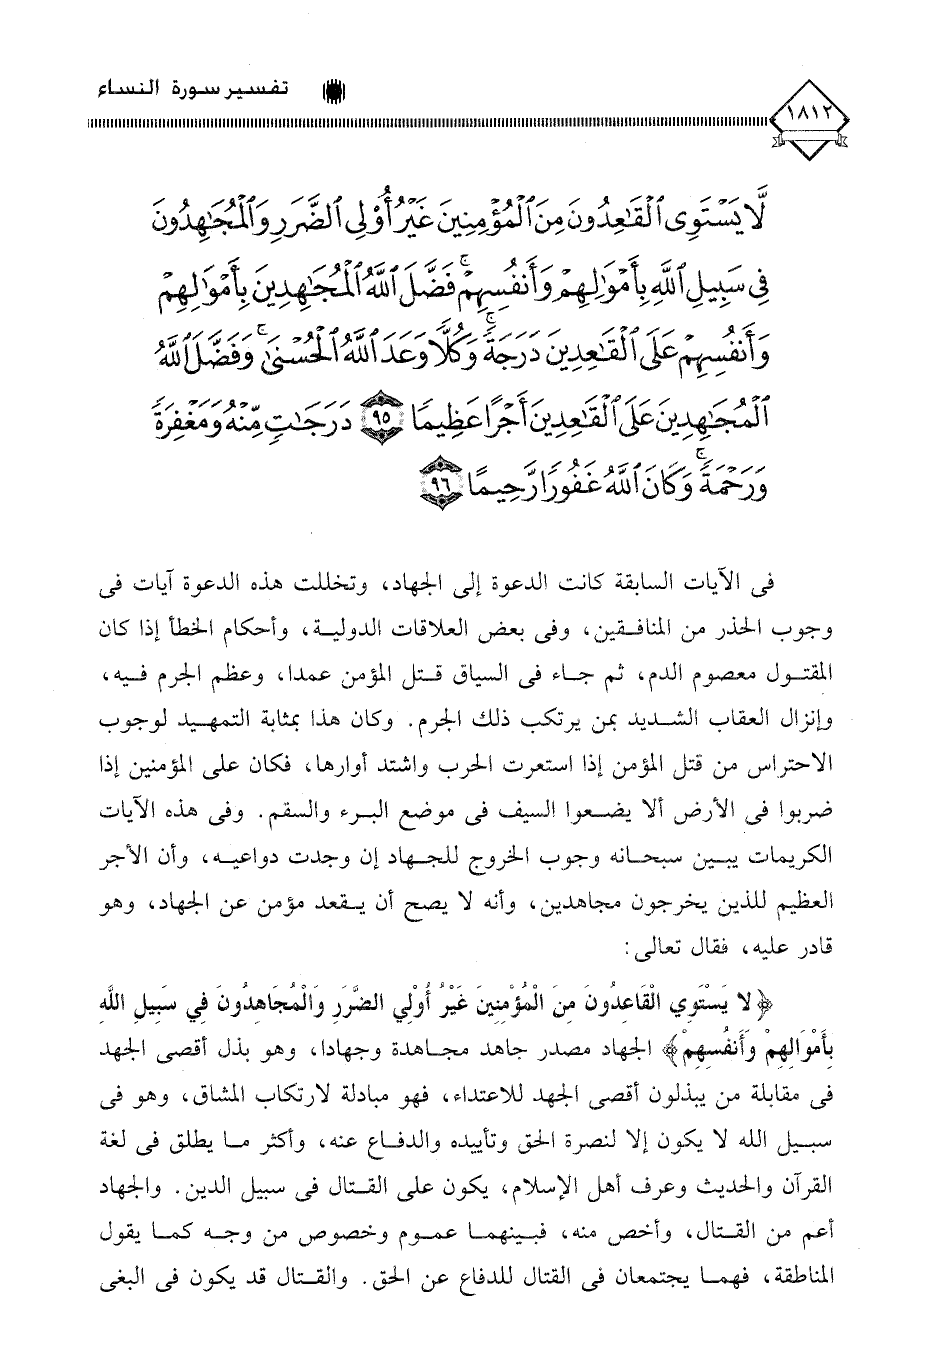 تفسير سورة النساء
١٨١٢
لَّا يَسْتَوِى ٱلْقَـٰعِدُونَ مِنَ ٱلْمُؤْمِنِينَ غَيْرُ أُو۟لِى ٱلضَّرَرِ وَٱلْمُجَـٰهِدُونَ
فِى سَبِيلِ ٱللَّهِ بِأَمْوَٰلِهِمْ وَأَنفُسِهِمْ ۚ فَضَّلَ ٱللَّهُ ٱلْمُجَـٰهِدِينَ بِأَمْوَٰلِهِمْ
وَأَنفُسِهِمْ عَلَى ٱلْقَـٰعِدِينَ دَرَجَةً ۚ وَكُلًّا وَعَدَ ٱللَّهُ ٱلْحُسْنَىٰ ۚ وَفَضَّلَ ٱللَّهُ
ٱلْمُجَـٰهِدِينَ عَلَى ٱلْقَـٰعِدِينَ أَجْرًا عَظِيمًا ٩٥ دَرَجَـٰتٍ مِّنْهُ وَمَغْفِرَةً
وَرَحْمَةً ۚ وَكَانَ ٱللَّهُ غَفُورًا رَّحِيمًا ٩٦
فى الآيات السابقة كانت الدعوة إلى الجهاد، وتخللت هذه الدعوة آيات فى
وجوب الحذر من المنافقين، وفى بعض العلاقات الدولية، وأحكام الخطأ إذا كان
المقتول معصوم الدم، ثم جاء فى السياق قتل المؤمن عمدا، وعظم الجرم فيه،
وإنزال العقاب الشديد بمن يرتكب ذلك الجرم. وكان هذا بمثابة التمهيد لوجوب
الاحتراس من قتل المؤمن إذا استعرت الحرب واشتد أوارها، فكان على المؤمنين إذا
ضربوا فى الأرض ألا يضعوا السيف فى موضع البرء والسقم. وفى هذه الآيات
الكريمات يبين سبحانه وجوب الخروج للجهاد إن وجدت دواعيه، وأن الأجر
العظيم للذين يخرجون مجاهدين، وأنه لا يصح أن يقعد مؤمن عن الجهاد، وهو
قادر عليه، فقال تعالى:
﴿لا يَسْتَوِي الْقَاعِدُونَ مِنَ الْمُؤْمِنِينَ غَيْرُ أُوْلِي الضَّرَرِ وَالْمُجَاهِدُونَ فِي سَبِيلِ اللَّهِ
بِأَمْوَالِهِمْ وَأَنفُسِهِمْ﴾ الجهاد مصدر جاهد مجاهدة وجهادا، وهو بذل أقصى الجهد
فى مقابلة من يبذلون أقصى الجهد للاعتداء، فهو مبادلة لارتكاب المشاق، وهو فى
سبيل الله لا يكون إلا لنصرة الحق وتأييده والدفاع عنه، وأكثر ما يطلق فى لغة
القرآن والحديث وعرف أهل الإسلام، يكون على القتال فى سبيل الدين. والجهاد
أعم من القتال، وأخص منه، فبينهما عموم وخصوص من وجه كما يقول
المناطقة، فهما يجتمعان فى القتال للدفاع عن الحق. والقتال قد يكون فى البغى